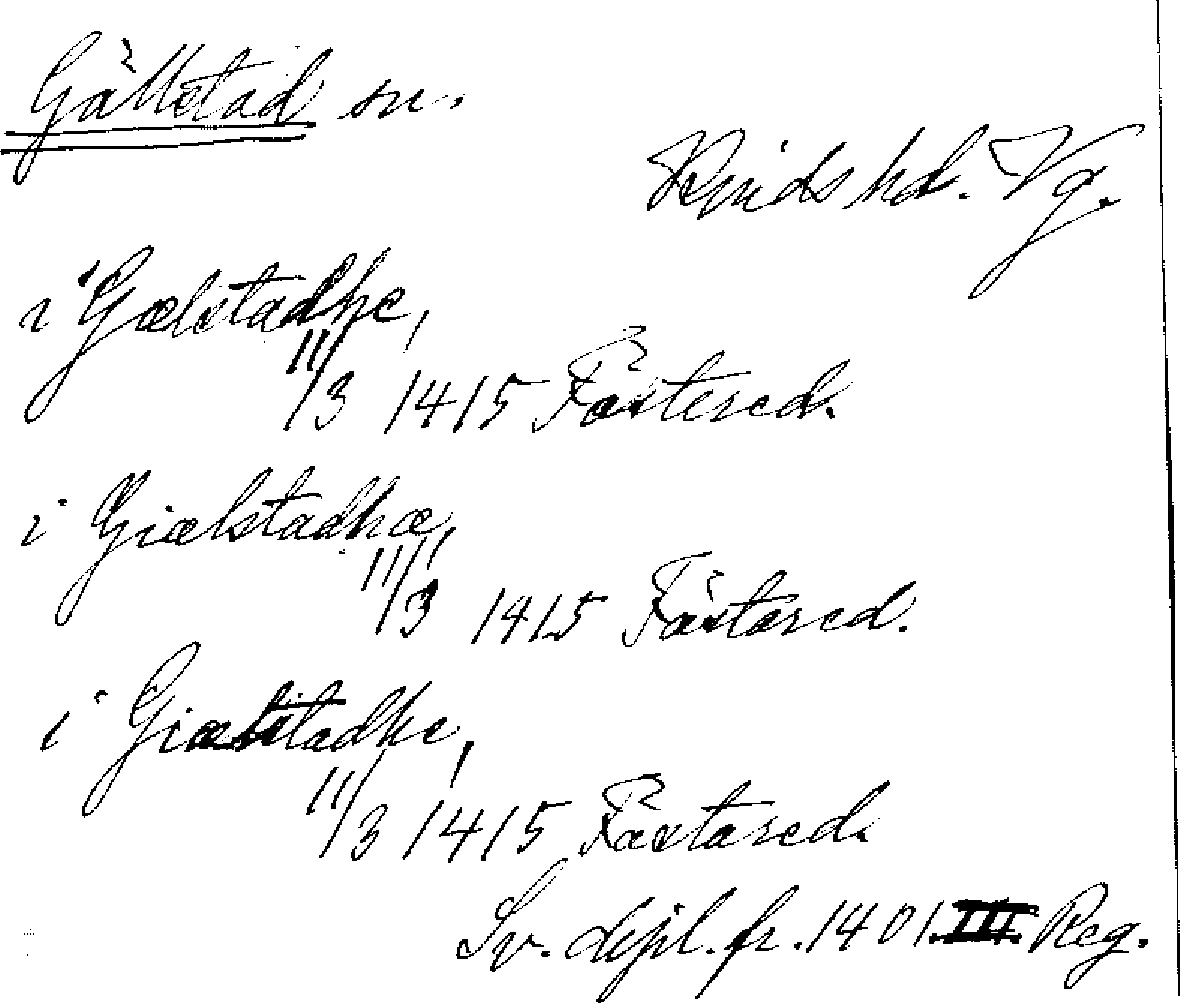 Gällstad sn.
Kinds hd. Vg.
i Gælstadhe,
11/3 1415 Fästered.
i Giælstadhæ,
11/3 1415 Fästered.
i Giælstadhe,
11/3 1415 Fästered.
Sv. dipl. fr. 1401. III. Reg.